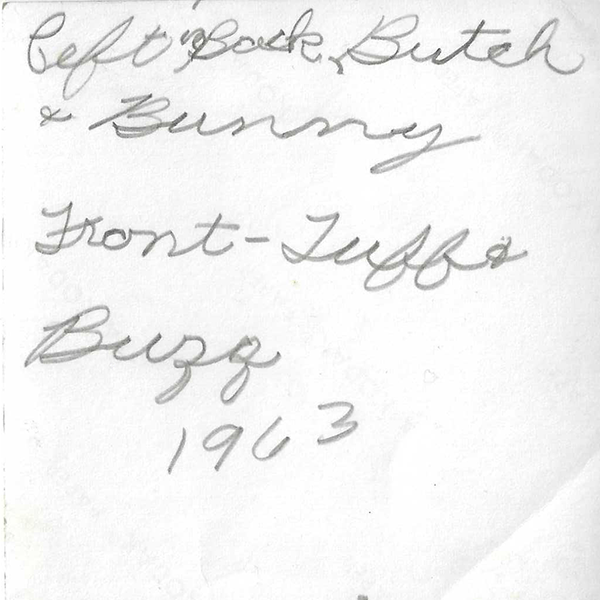 Left in Back, Butch
& Bunny
Front - Tuff &
Buzz
1963